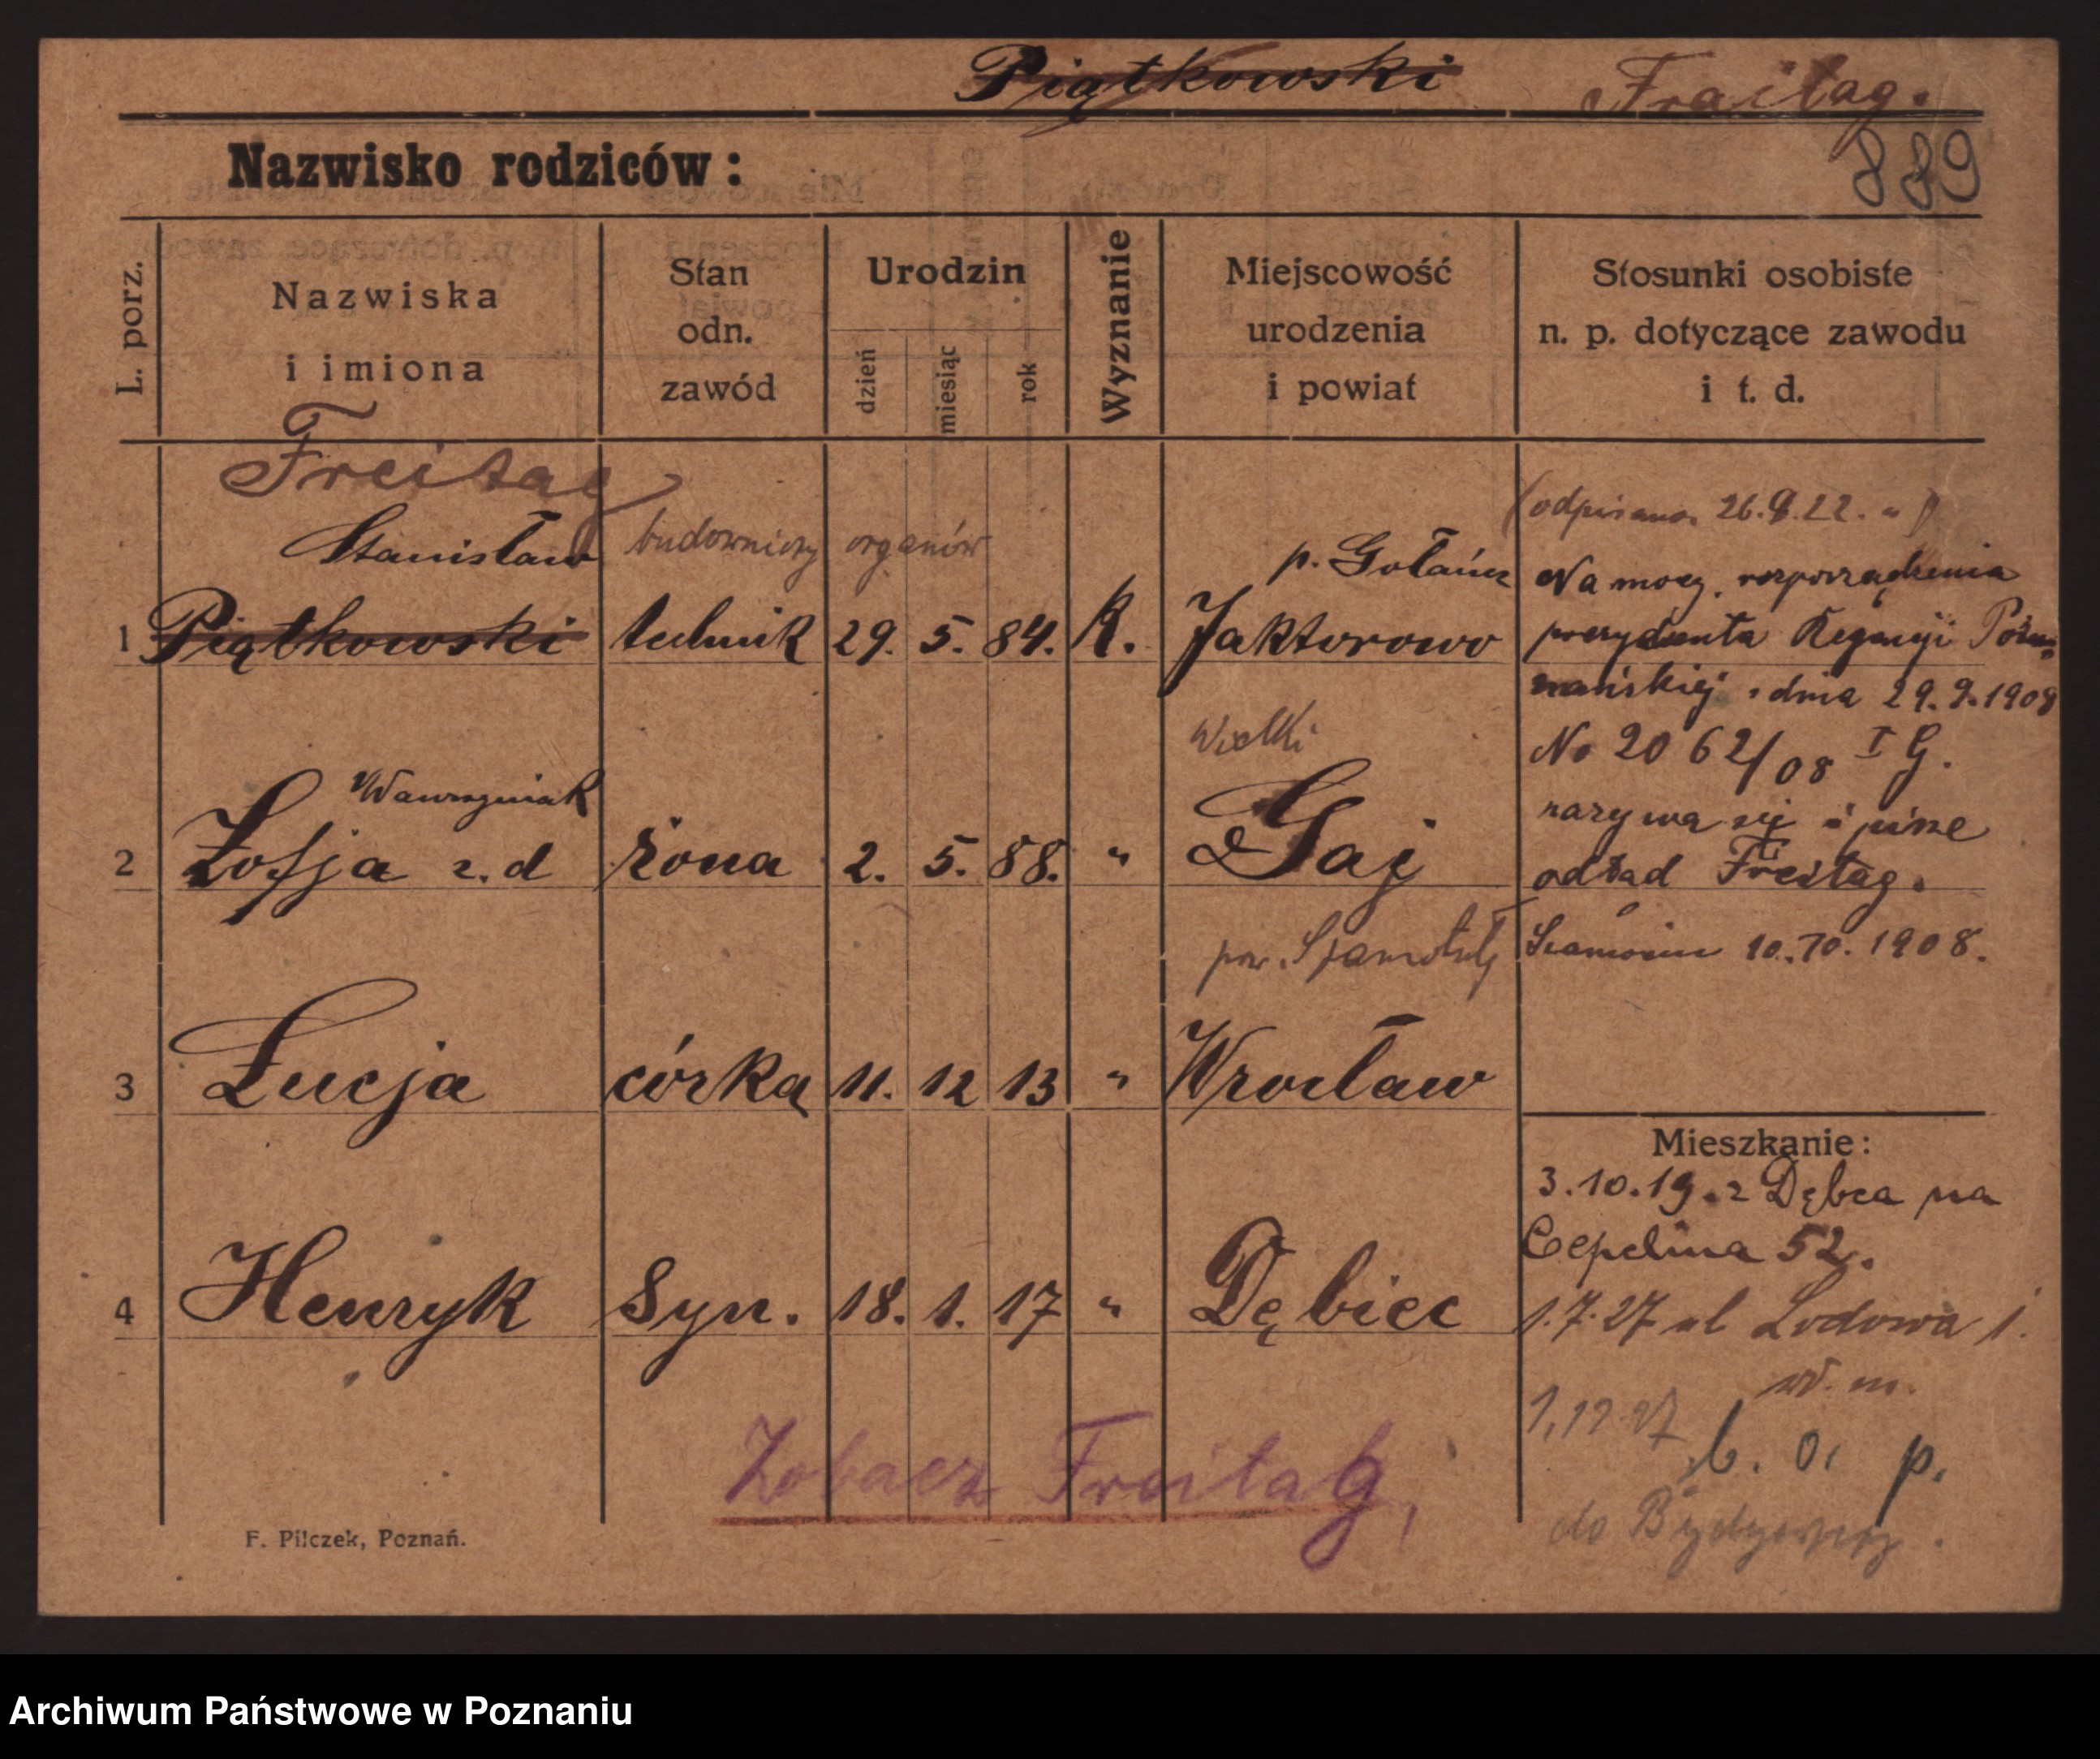 Piątkowski Fraitag.
Nazwisko rodziców:
889
L. porz.
Nazwiska
i imiona
Stan
odn.
zawód
Urodzin
dzień
miesiąc
rok
Wyznanie
Miejscowość
urodzenia
i powiat
Stosunki osobiste
n. p. dotyczące zawodu
i t. d.
Freitag
Stanisław budowniczy organów p. Gołańcz
1 Piątkowski technik 29. 5. 84. K. Jaktorowo
Wielki
Wawrzyniak
2 Zofja z. d żona 2. 5. 88. " Gaj
pow. Szamotuły
3 Łucja córka 11. 12 13 " Wrocław
4 Henryk Syn. 18. 1. 17 " Dębiec
(odpisano 26.9.22.
Na mocy rozporządzenia
prezydenta Regencji Poz-
nańskiej z dnia 29.9.1908
No 20 62/08 I G.
nazywa się i pisze
odtąd Freitag.
10.10.1908.
Mieszkanie:
3.10.19. z Dębca na
Cepelina 52.
1.7.27 ul Lodowa 1.
w. m.
1,12 27 b. o. p.
do Bydgoszczy.
Zobacz Freitag,
F. Pilczek, Poznań.
Archiwum Państwowe w Poznaniu